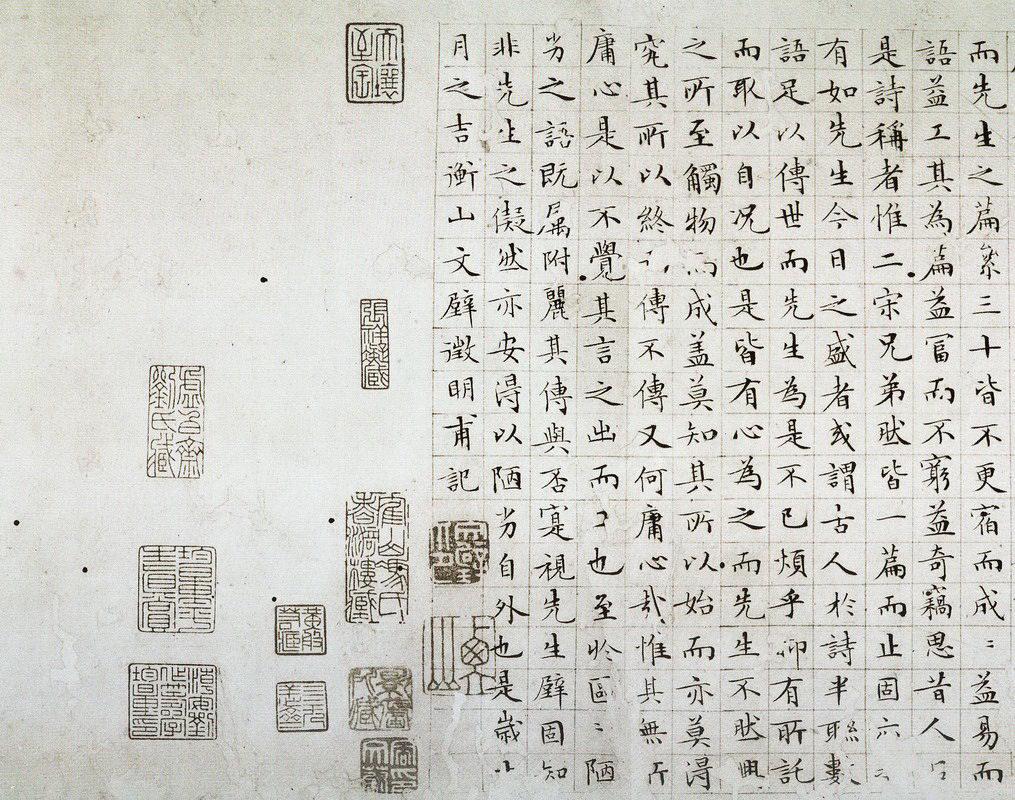 而先生之篇累三十皆不更宿而成〻益易而
語益工其為篇益富而不窮益奇竊思昔人以
是詩稱者惟二宋兄弟然皆一篇而止固
有如先生今日之盛者或謂古人於詩半聯數
語足以傳世而先生為是不已煩乎抑有所託
而取以自況也是皆有心為之而先生不然興
之所至觸物而成蓋莫知其所以始而亦莫得
究其所以終傳不傳又何庸心哉惟其無所
庸心是以不覺其言之出而工也至於區〻陋
劣之語既屬附麗其傳與否寔視先生壁固知
非先生之儗然亦安得以陋劣自外也是歲十
月之吉衡山文壁徵明甫記
天壤至寶
虛白齋
劉氏藏